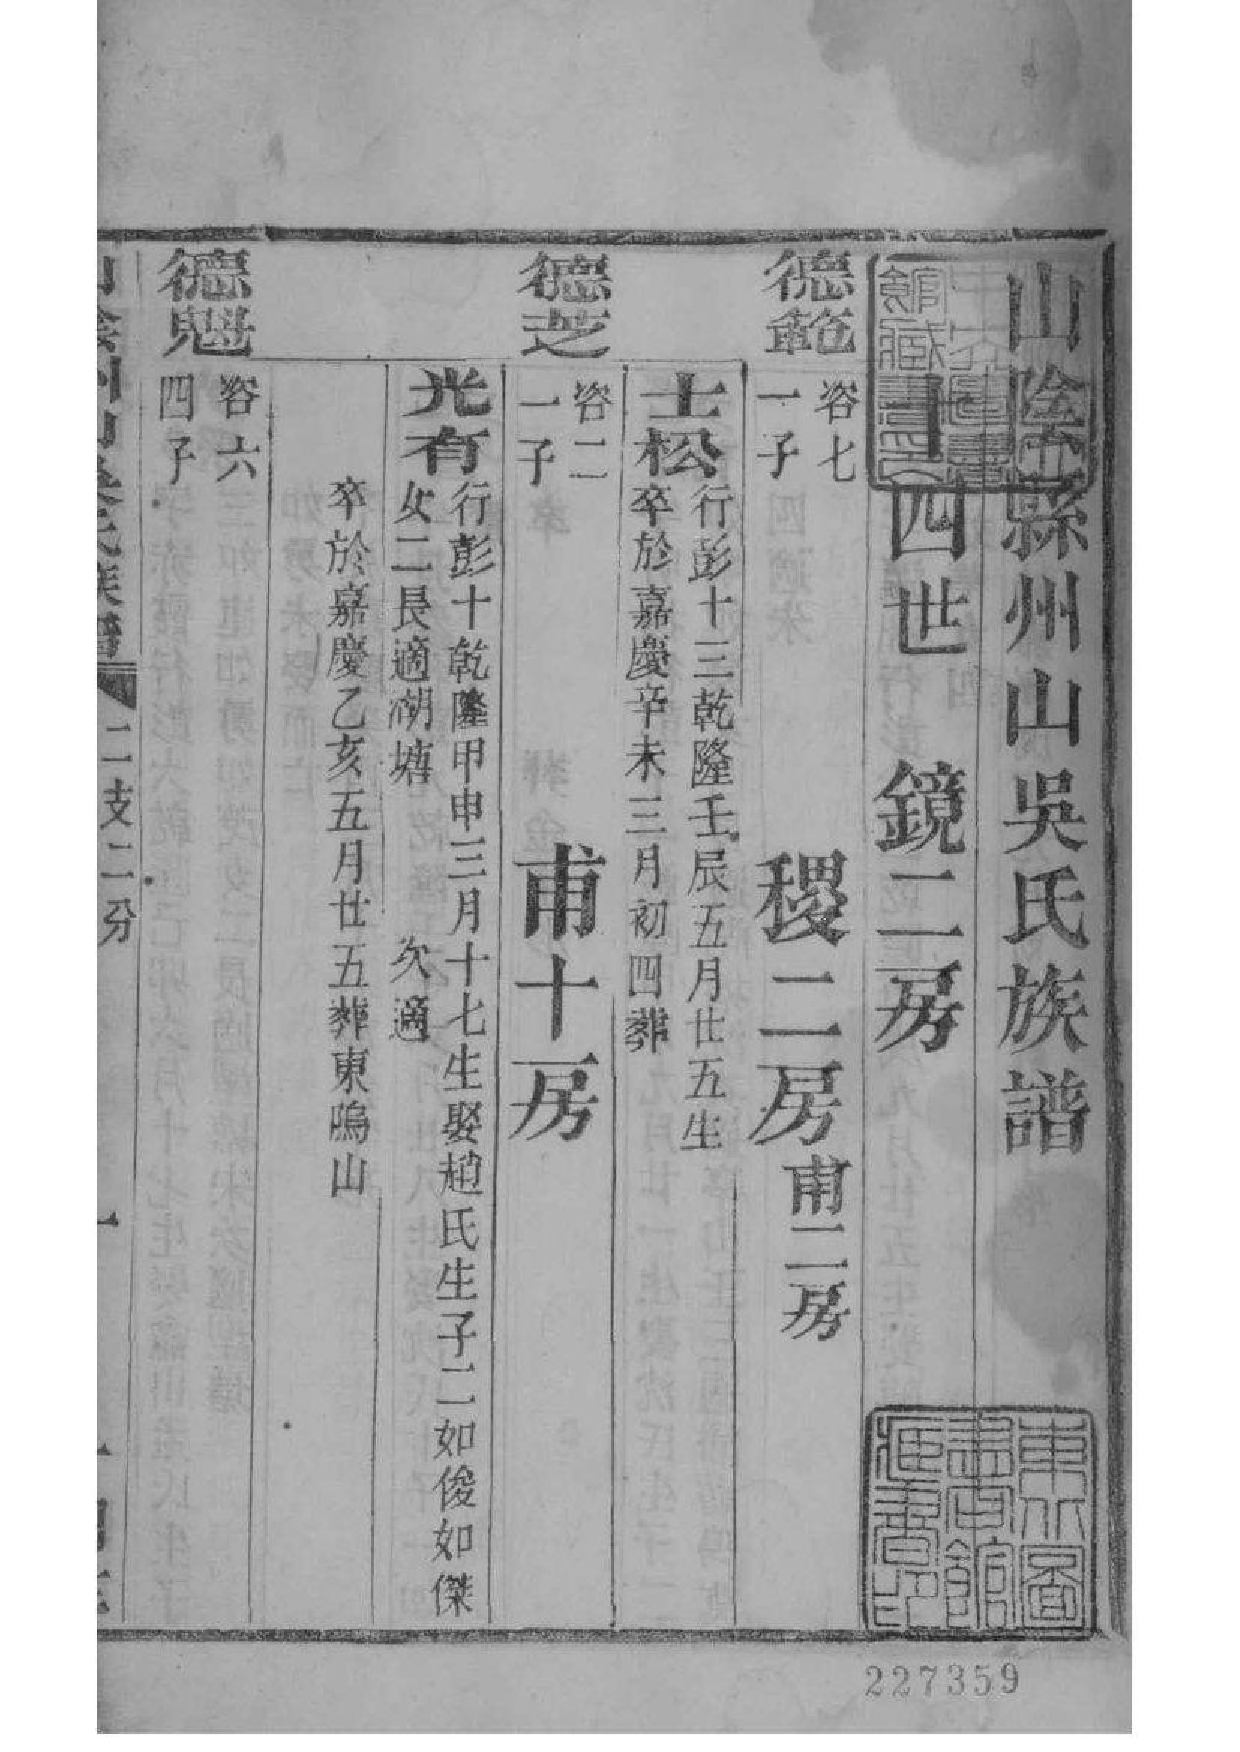 山陰縣州山吳氏族譜
十四世 鏡二房
稷二房 甫二房
德範 容七
一子
士松 行彭十三乾隆壬辰五月廿五生
卒於嘉慶辛未三月初四葬
甫十一房
德芝 容二
一子
光有 行彭十乾隆甲申三月十七生娶趙氏生子二如俊如傑
女二長適湖塘 次適
卒於嘉慶乙亥五月廿五葬東鴿山
德魁 容六
四子
山陰州山吳氏族譜 二支二分
東北圖書館藏書印
227359